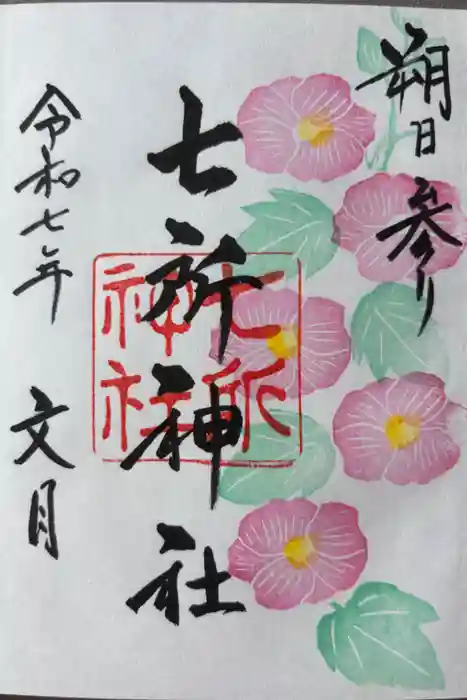 朔日参り
七所神社
七所神社
令和七年 文月